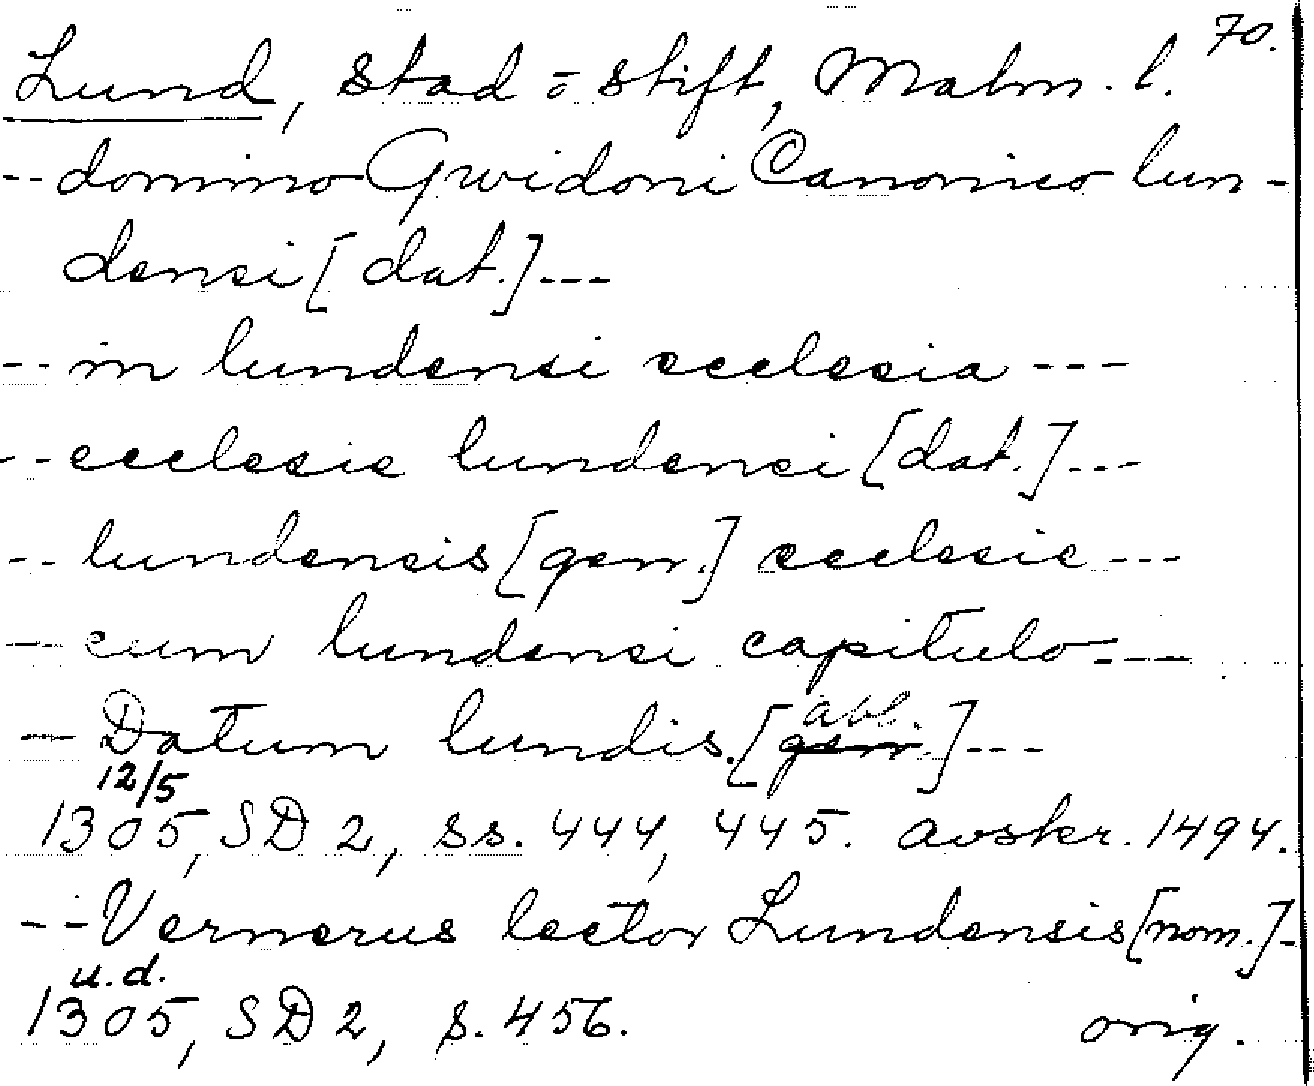 70.
Lund, stad o stift, Malm. l.
-- domino Gwidoni Canonico lun-
densi [dat.] ---
-- in lundensi ecclesia ---
-- ecclesie lundensi [dat.] ---
-- lundensis [gen.] ecclesie ---
-- cum lundensi capitulo ---
-- Datum lundis. [abl.] ---
12/5
1305, SD 2, ss. 444, 445. avskr. 1494.
-- Vernerus lector Lundensis [nom.] -
u.d.
1305, SD 2, s. 456. orig.